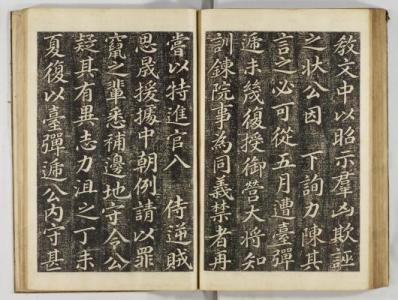 教文中以昭示羣凶欺誣
之狀公因　下詢力陳其
言之必可從五月遭臺彈
遞未幾復授御營大將知
訓鍊院事為同義禁者再
嘗以特進官入　侍逆賊
思晟援據中朝例請以罪
竄之輩悉補邊地守令公
疑其有異志力沮之丁未
夏復以臺彈遞公內守甚